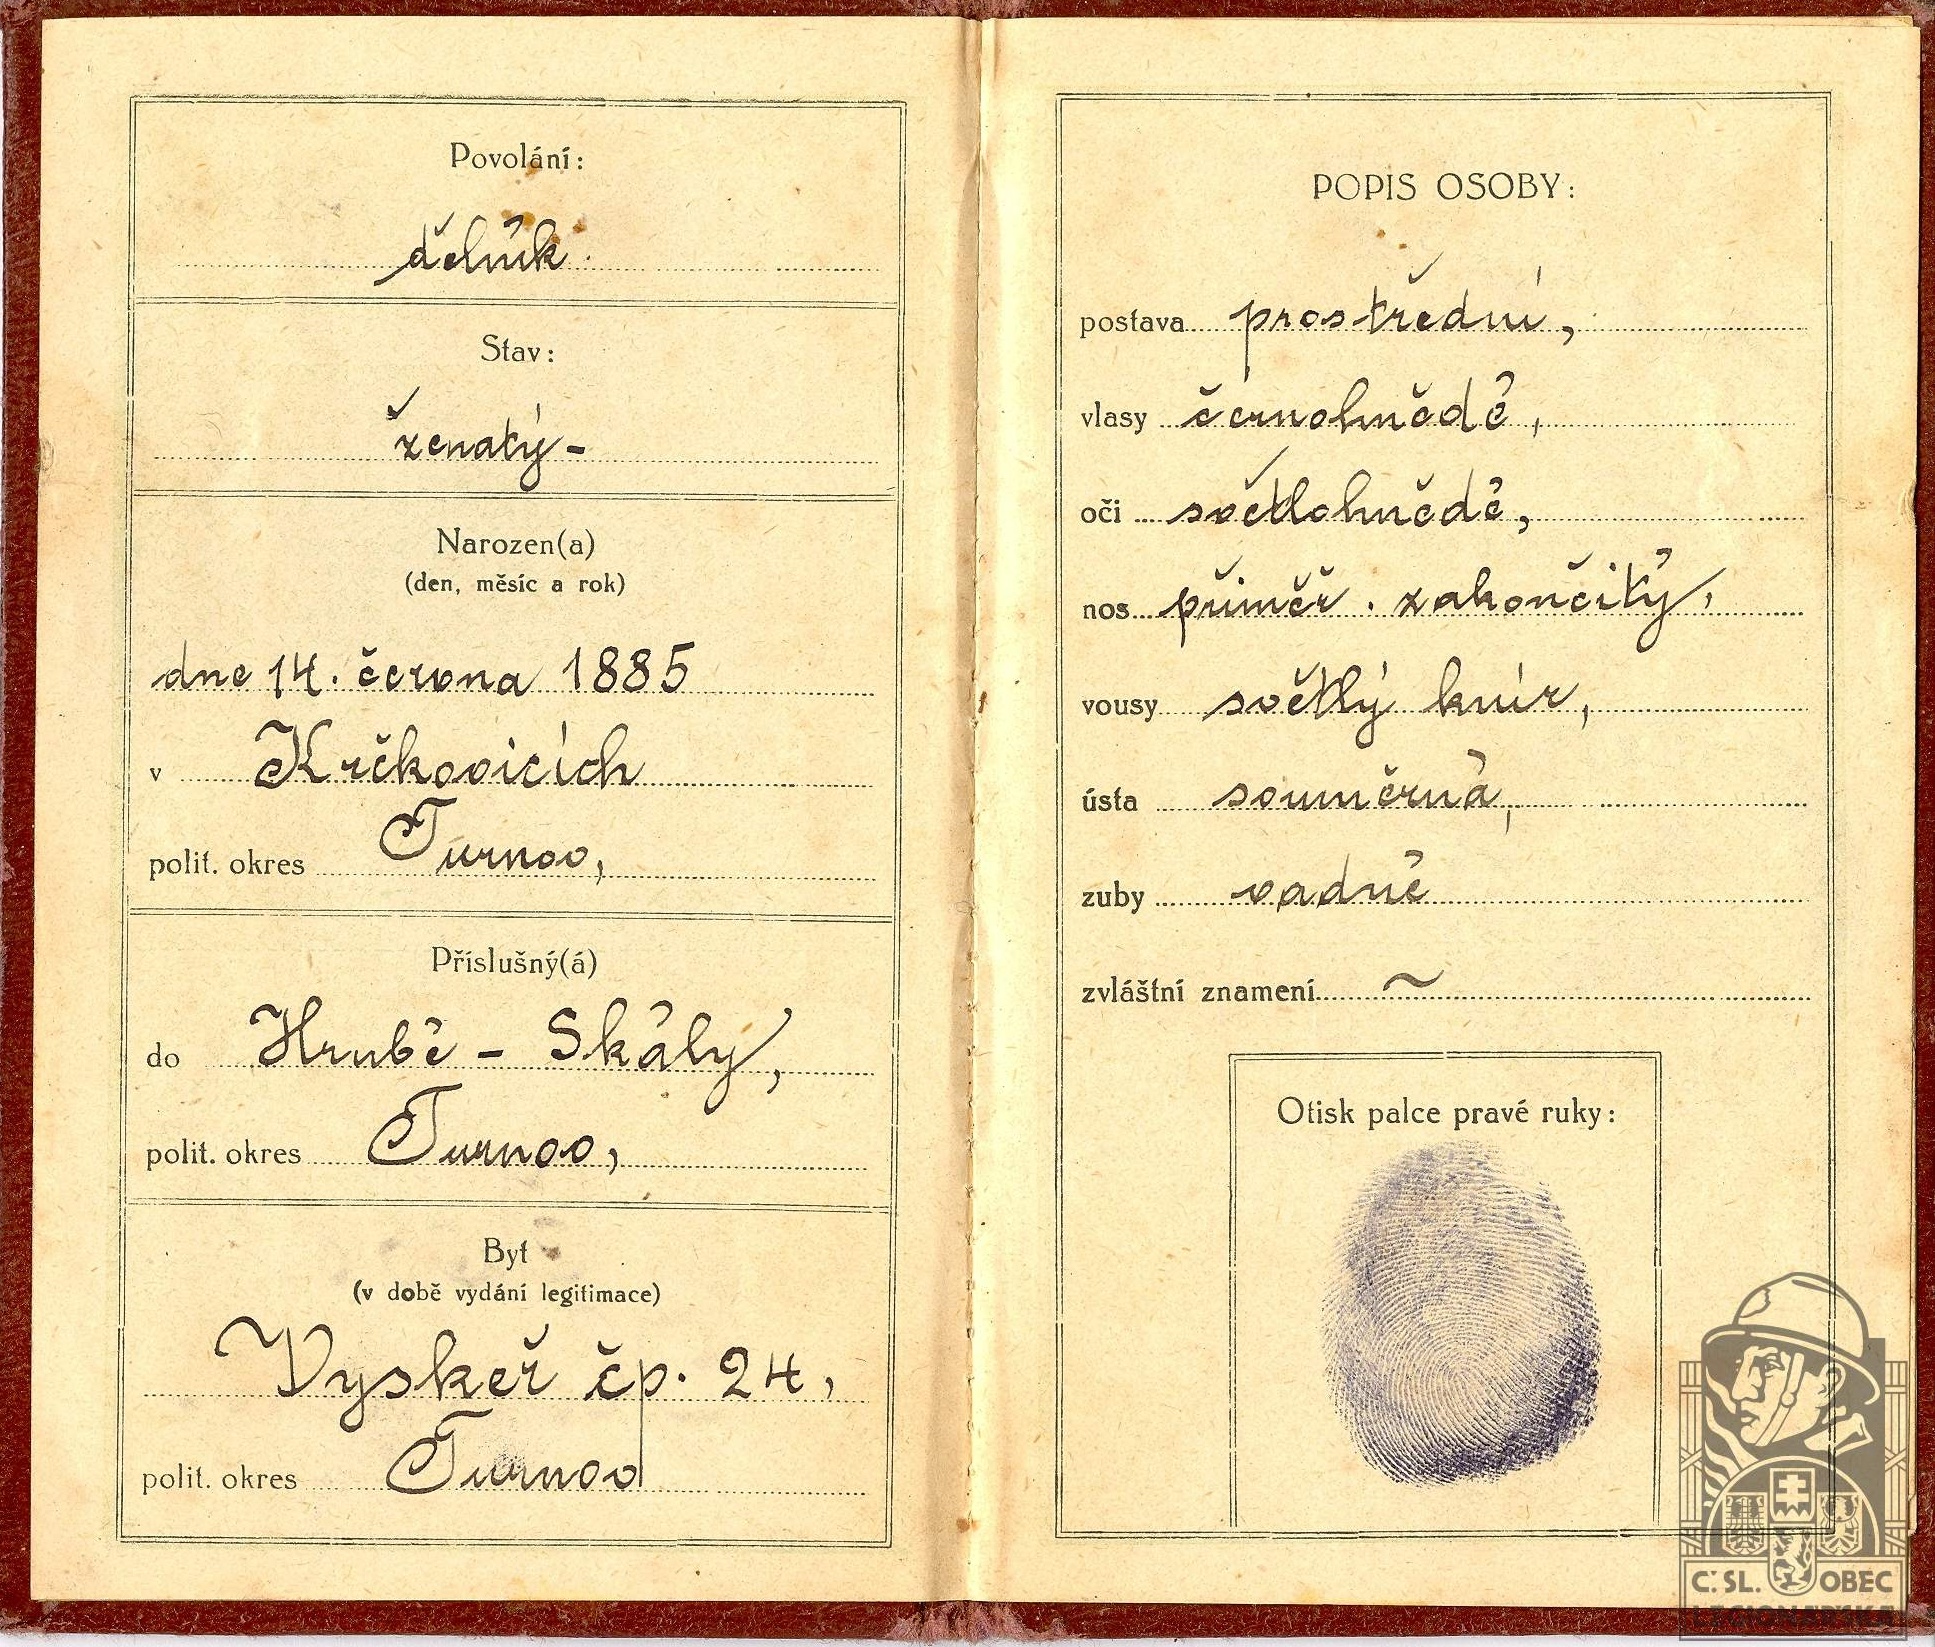 Povolání:
dělník
Stav:
ženatý -
Narozen(a)
(den, měsíc a rok)
dne 14. června 1885
v Krčkovicích
polit. okres Turnov,
Příslušný(á)
do Hrubé - Skály,
polit. okres Turnov,
Byt
(v době vydání legitimace)
Vyskeř čp. 24,
polit. okres Turnov
POPIS OSOBY:
postava prostřední,
vlasy černohnědé,
oči světlohnědé,
nos přiměř. zakončitý,
vousy světlý knír,
ústa souměrná,
zuby vadné
zvláštní znamení ~
Otisk palce pravé ruky:
Č. SL. OBEC
LEGIONÁŘSKÁ